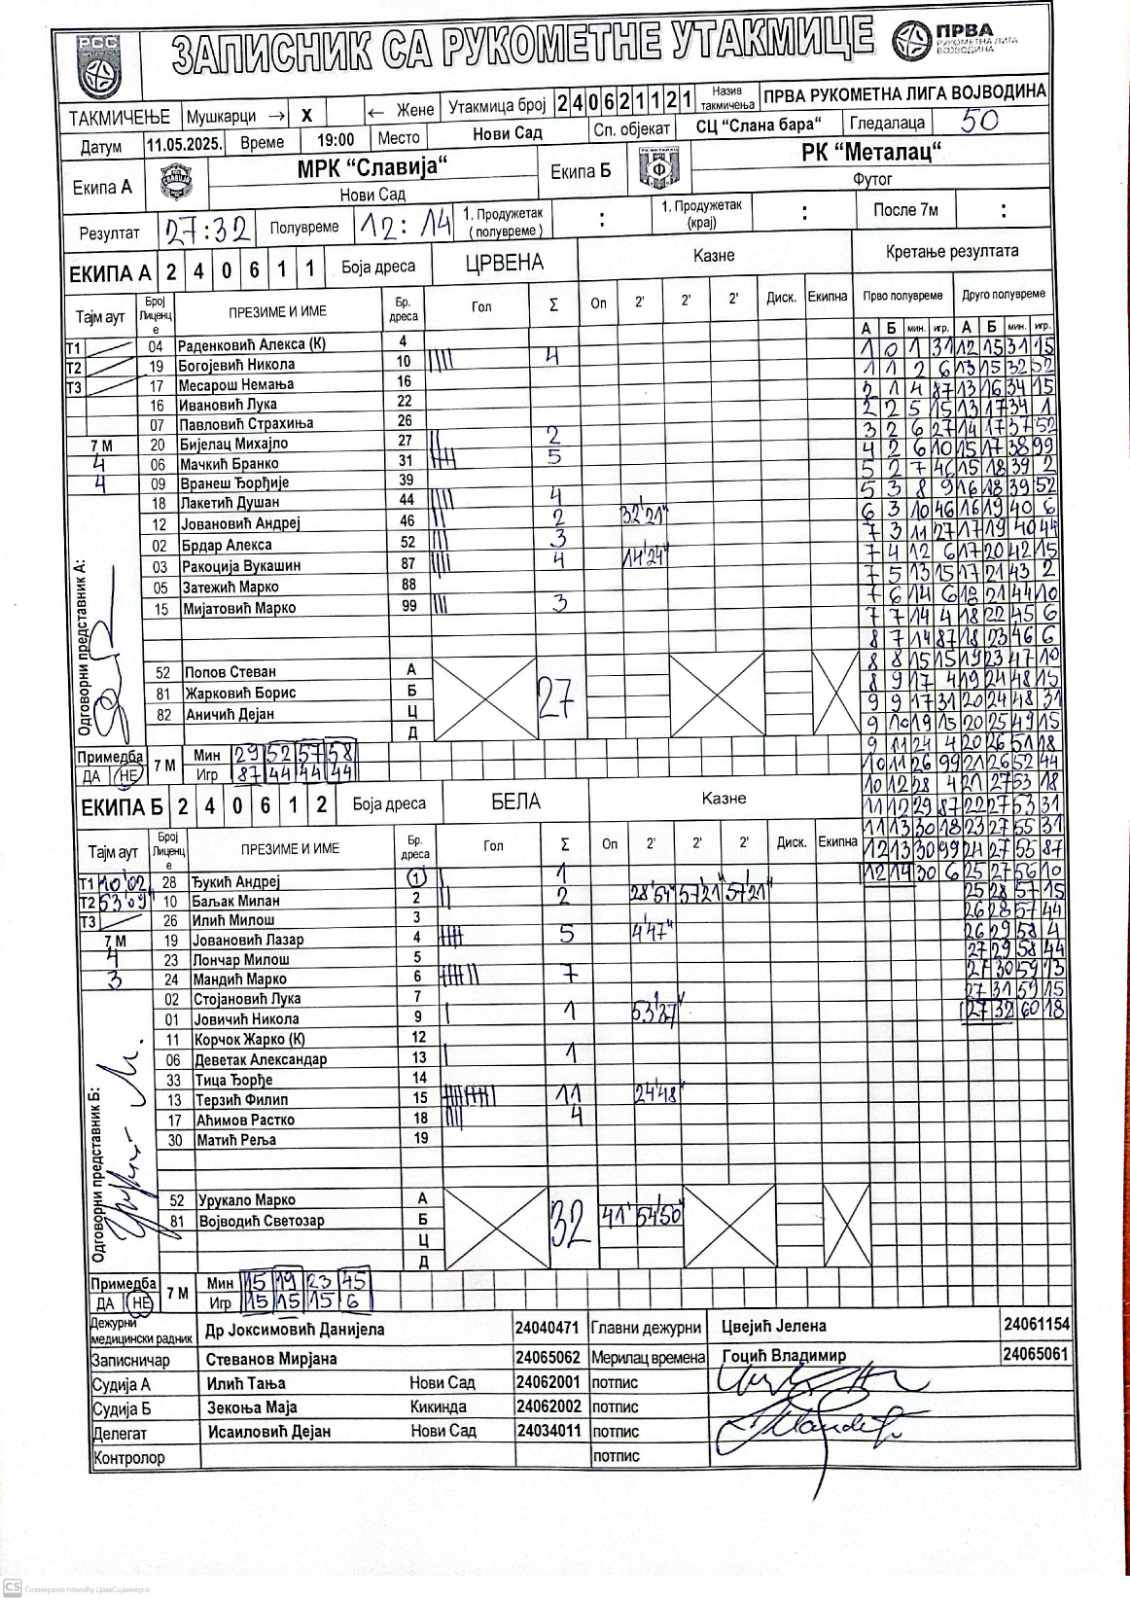 РСС
ЗАПИСНИК СА РУКОМЕТНЕ УТАКМИЦЕ
ПРВА
РУКОМЕТНА ЛИГА
ВОЈВОДИНА
ТАКМИЧЕЊЕ Мушкарци → X ← Жене Утакмица број 2 4 0 6 2 1 1 2 1 Назив такмичења ПРВА РУКОМЕТНА ЛИГА ВОЈВОДИНА
Датум 11.05.2025. Време 19:00 Место Нови Сад Сп. објекат СЦ “Слана бара“ Гледалаца 50
Екипа А МРК “Славија“ Екипа Б РК “Металац“
Нови Сад Футог
Резултат 27:32 Полувреме 12:14 1. Продужетак (полувреме) : 1. Продужетак (крај) : После 7м :
ЕКИПА А 2 4 0 6 1 1 Боја дреса ЦРВЕНА Казне Кретање резултата
Тајм аут Број Лиценце ПРЕЗИМЕ И ИМЕ Бр. дреса Гол Σ Оп 2' 2' 2' Диск. Екипна Прво полувреме Друго полувреме
А Б мин. игр. А Б мин. игр.
Т1 04 Раденковић Алекса (К) 4
Т2 19 Богојевић Никола 10 4
Т3 17 Месарош Немања 16
16 Ивановић Лука 22
07 Павловић Страхиња 26
7 М 20 Бијелац Михајло 27 2
4 06 Мачкић Бранко 31 5
4 09 Вранеш Ђорђије 39
18 Лакетић Душан 44 4
12 Јовановић Андреј 46 2 32'21"
02 Брдар Алекса 52 3
03 Ракоција Вукашин 87 4 14'24"
05 Затежић Марко 88
15 Мијатовић Марко 99 3
Одговорни представник А:
52 Попов Стеван А
81 Жарковић Борис Б 27
82 Аничић Дејан Ц
Д
Примедба ДА НЕ 7 М Мин 29 52 57 58
Игр 87 44 44 44
1 0 1 31 12 15 31 15
1 1 2 6 13 15 32 52
2 1 4 87 13 16 34 15
2 2 5 15 13 17 34 1
3 2 6 27 14 17 37 52
4 2 6 10 15 17 38 99
5 2 7 46 15 18 39 2
5 3 8 9 16 18 39 52
6 3 10 46 16 19 40 6
7 3 11 27 17 19 40 44
7 4 12 6 17 20 42 15
7 5 13 15 17 21 43 2
7 6 14 6 18 21 44 10
7 7 14 4 18 22 45 6
8 7 14 87 18 23 46 6
8 8 15 15 19 23 47 10
8 9 17 4 19 24 48 15
9 9 17 31 20 24 48 31
9 10 19 15 20 25 49 15
9 11 24 4 20 26 51 18
10 11 26 99 21 26 52 44
10 12 28 4 21 27 53 18
11 12 29 87 22 27 53 31
11 13 30 18 23 27 55 31
12 13 30 99 24 27 55 87
12 14 30 6 25 27 56 10
25 28 57 15
26 28 57 44
26 29 58 4
27 29 58 44
27 30 59 13
27 31 59 15
27 32 60 18
ЕКИПА Б 2 4 0 6 1 2 Боја дреса БЕЛА Казне
Тајм аут Број Лиценце ПРЕЗИМЕ И ИМЕ Бр. дреса Гол Σ Оп 2' 2' 2' Диск. Екипна
Т1 10'02 28 Ђукић Андреј 1 1
Т2 53'09" 10 Баљак Милан 2 2 28'54" 57'21 57'21"
Т3 26 Илић Милош 3
7 М 19 Јовановић Лазар 4 5 4'47"
4 23 Лончар Милош 5
3 24 Мандић Марко 6 7
02 Стојановић Лука 7
01 Јовичић Никола 9 1 53'37"
11 Корчок Жарко (К) 12
06 Деветак Александар 13 1
33 Тица Ђорђе 14
13 Терзић Филип 15 11 24'48"
17 Аћимов Растко 18 4
30 Матић Реља 19
Одговорни представник Б:
52 Урукало Марко А
81 Војводић Светозар Б 32 41' 54'50"
Ц
Д
Примедба ДА НЕ 7 М Мин 15 19 23 45
Игр 15 15 15 6
Дежурни медицински радник Др Јоксимовић Данијела 24040471 Главни дежурни Цвејић Јелена 24061154
Записничар Стеванов Мирјана 24065062 Мерилац времена Гоцић Владимир 24065061
Судија А Илић Тања Нови Сад 24062001 потпис
Судија Б Зекоња Маја Кикинда 24062002 потпис
Делегат Исаиловић Дејан Нови Сад 24034011 потпис
Контролор потпис
CS Скенирано помоћу ЦамСцаннер-а